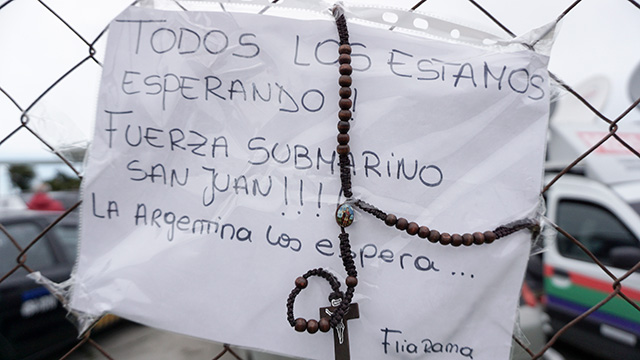 TODOS LOS ESTAMOS
ESPERANDO!!
FUERZA SUBMARINO
SAN JUAN!!!
LA ARGENTINA LOS ESPERA...
Flia Rama